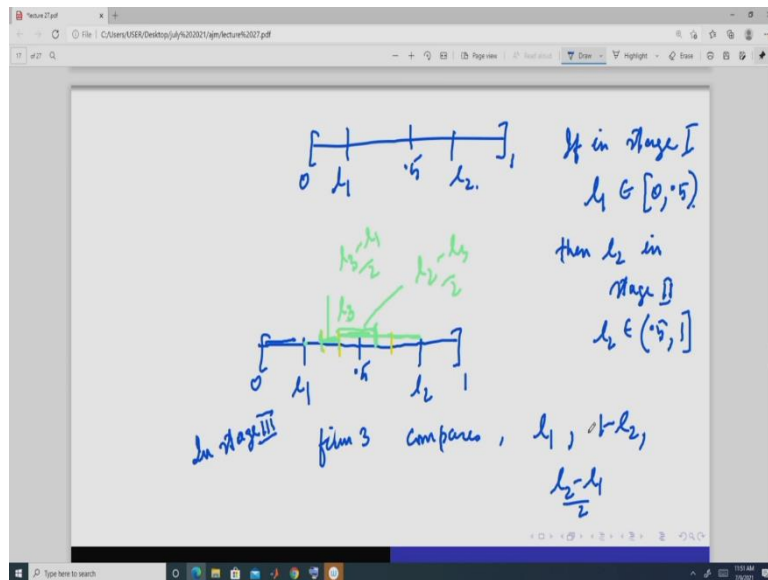 lecture 27.pdf
File | C:/Users/USER/Desktop/july%202021/ajm/lecture%2027.pdf
17 of 27
Page view
Read aloud
Draw
Highlight
Erase
0 l₁ .5 l₂ 1
If in stage I
l₁ ∈ [0, .5)
then l₂ in
stage II
l₂ ∈ (.5, 1]
l₃-l₁
2
l₂-l₃
2
l₃
0 l₁ .5 l₂ 1
In stage III firm 3 compares, l₁, 1-l₂,
l₂-l₁
2
Type here to search
11:51 AM
7/9/2021